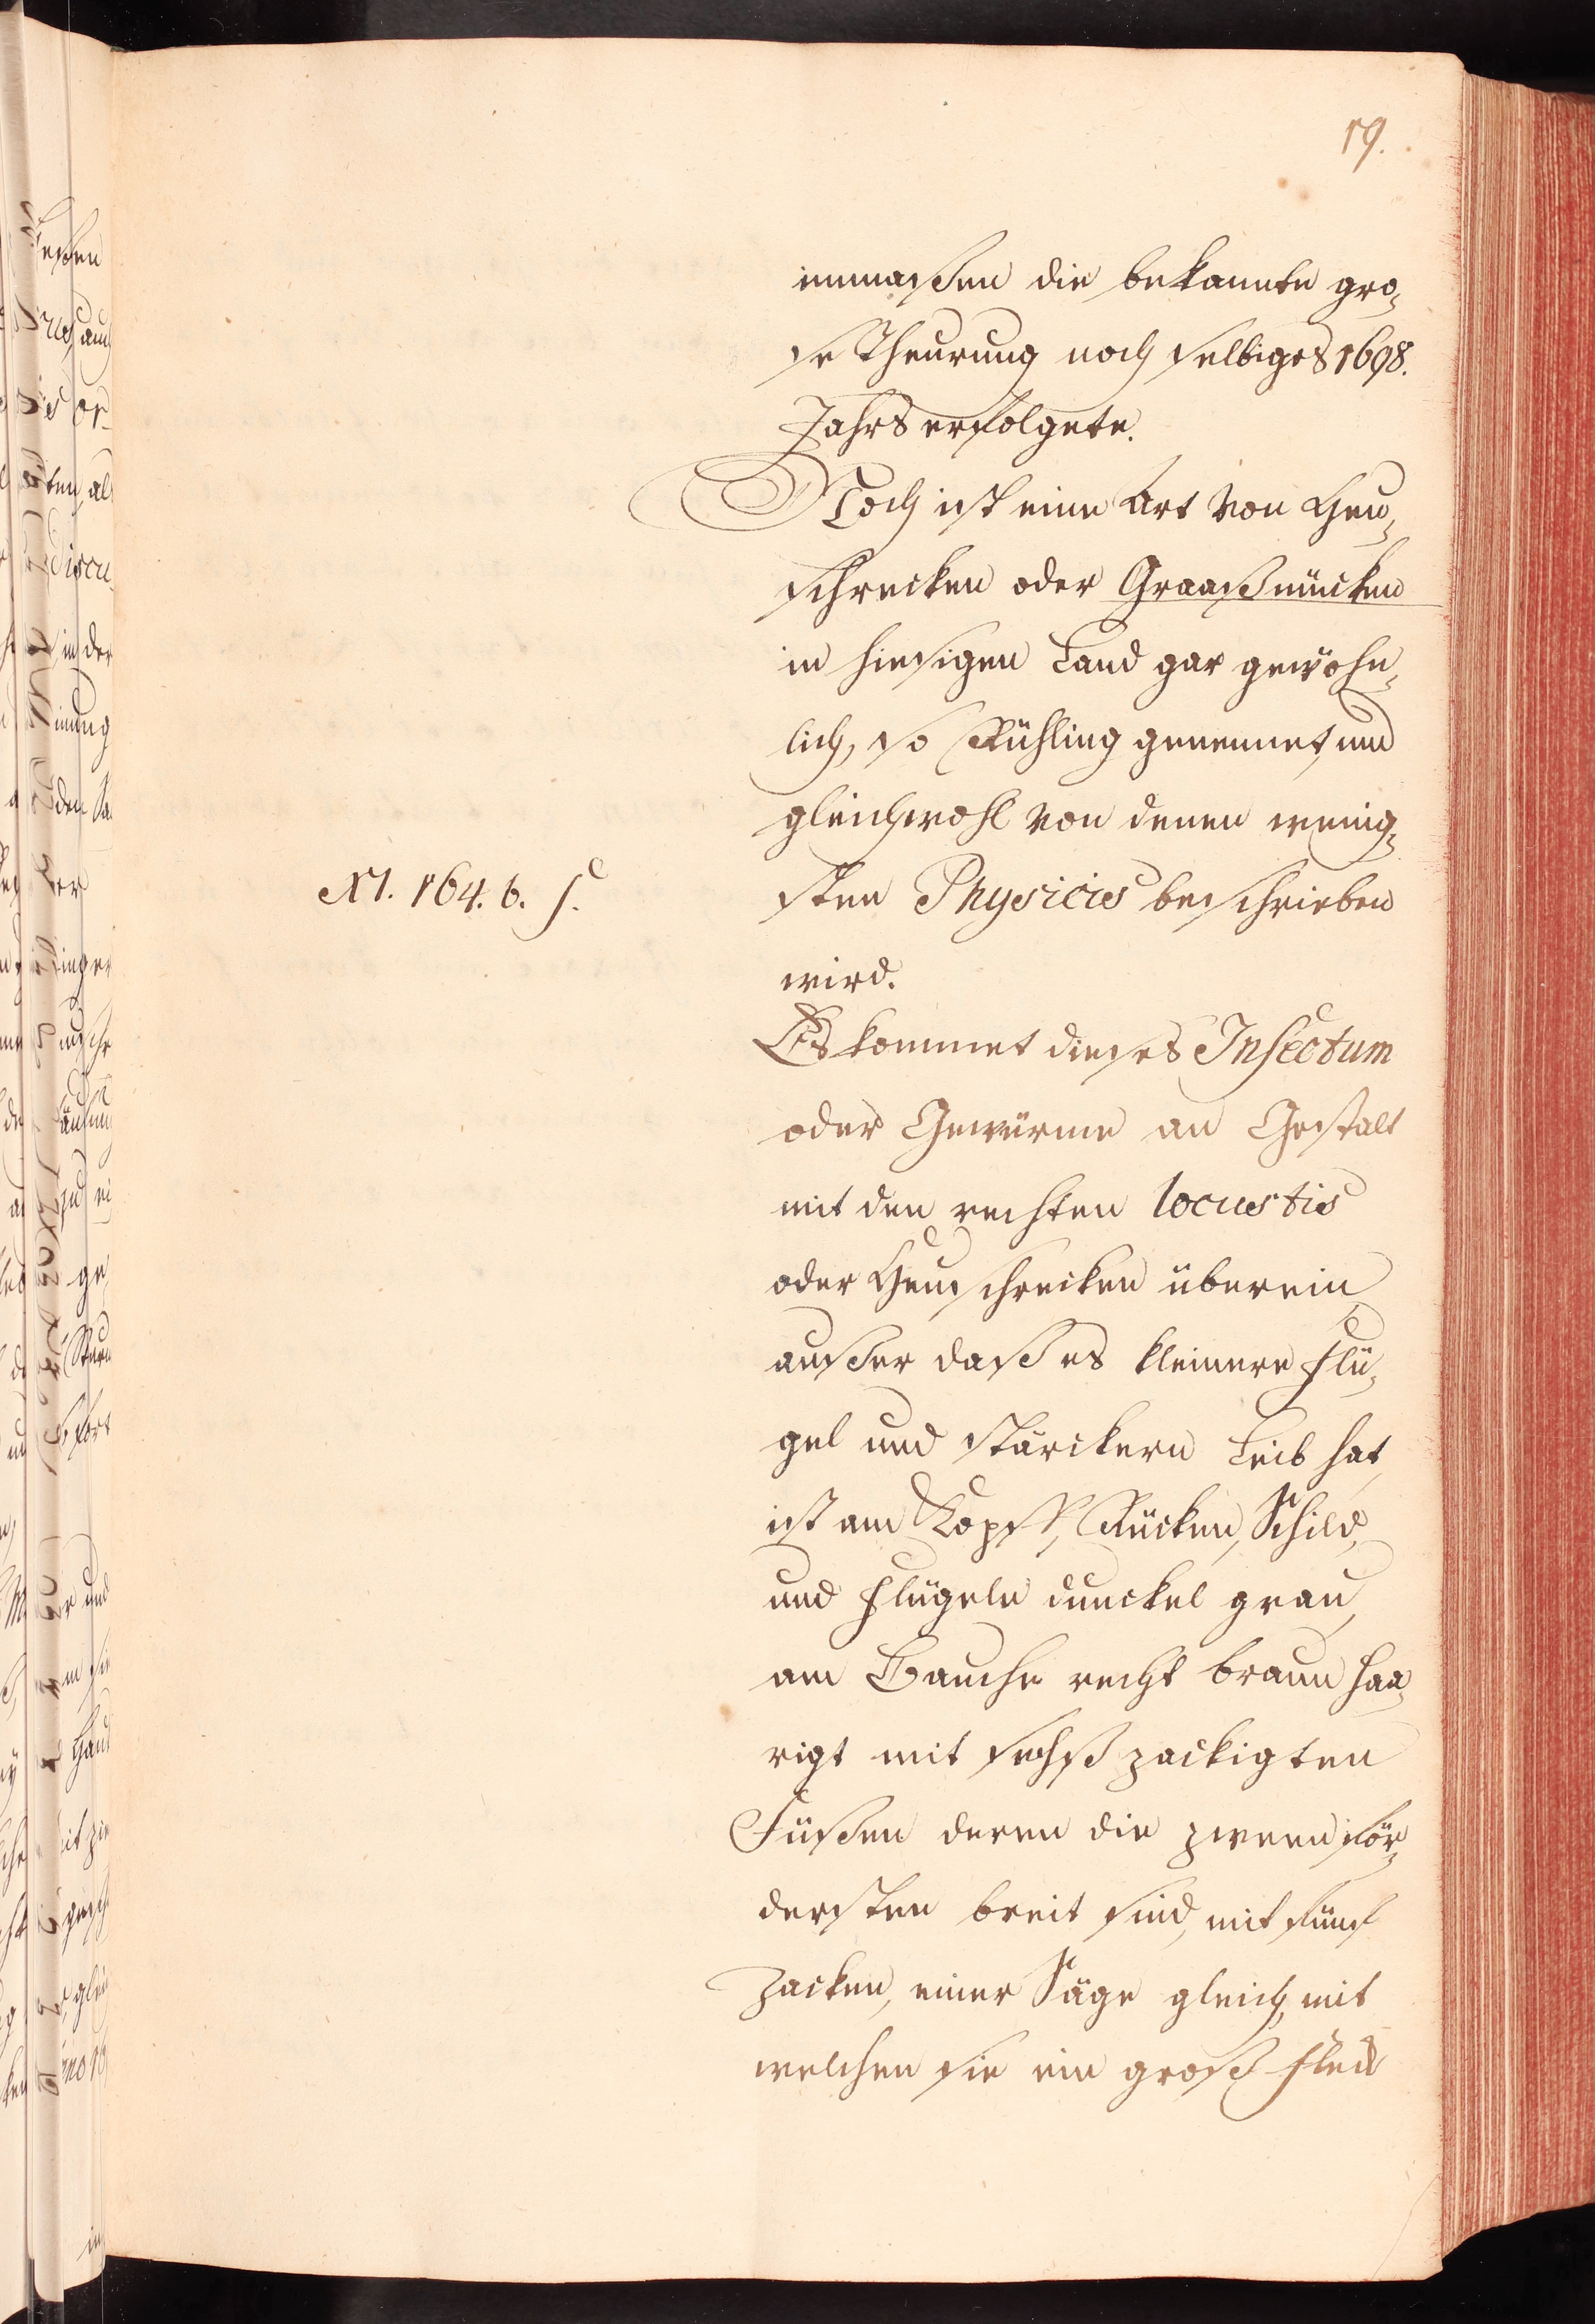 19.
inmaßen die bekannte gro„
se Theurung noch selbiges 1698.
Jahrs erfolgete.
Noch ist eine Art von Heu„
schrecken oder Graaßmücken
in hiesigen Land gar gewöhn„
lich, so Rühling genennet, und
gleichwohl von denen wenig„
XI. 164. b. f.
sten Physicis beschrieben
wird.
Es kommet dieses Insectum
oder Gewürme an Gestalt
mit den rechten locustis
oder Heuschrecken überein
außer daß es kleinere Flü„
gel und stärckern Leib hat,
ist am Kopff, Rücken, Schild,
und Flügeln dunckel grau,
am Bauche recht braun haa„
rigt mit sechß zackigten
Füßen deren die zween för„
dersten breit sind, mit fünf
Zacken, einer Säge gleich, mit
welchen sie ein groß Fleck